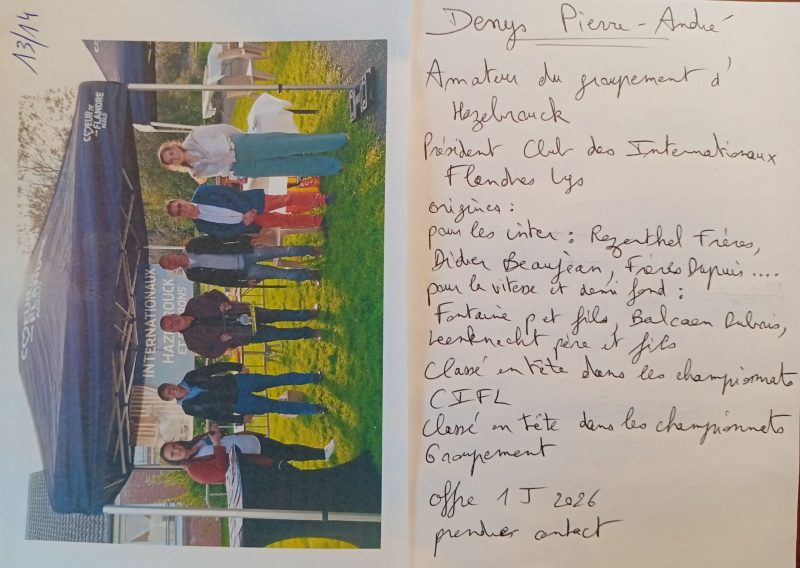 13/14
CŒUR DE
FLANDRE
AGGLO
INTERNATIONAUX
HAZEBROUCK
ET
Denys Pierre-André
Amateur du groupement d'
Hazebrouck
Président Club des Internationaux
Flandres Lys
origines :
pour les inter : Rezenthel Frères,
Didier Beaujean, Frères Dupuis ....
pour la vitesse et demi fond :
Fontaine p et fils, Balcaen Dubois,
Leenknecht père et fils
Classé en tête dans les championnats
CIFL
Classé en tête dans les championnats
Groupement
offre 1 J 2026
prendre contact